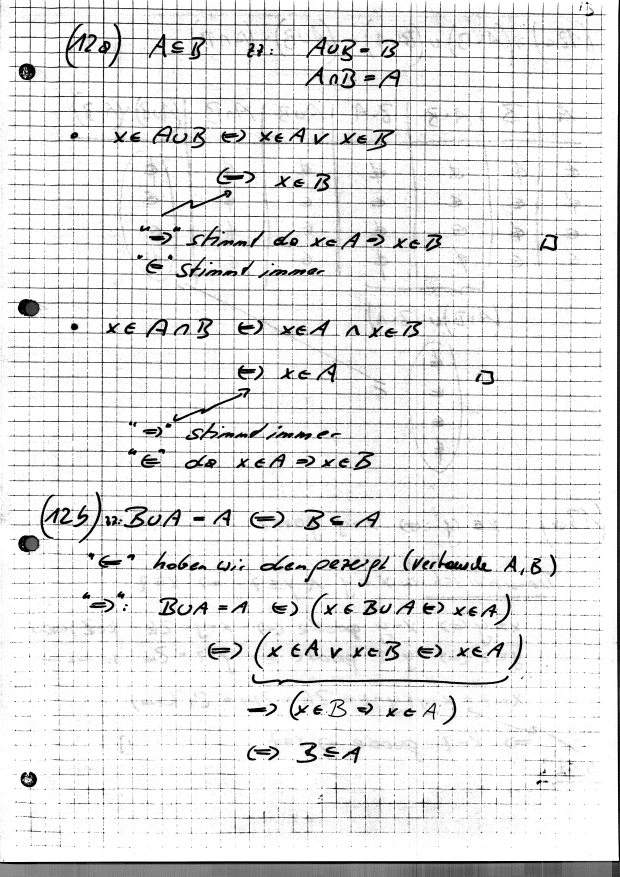 (12a) A ⊆ B zz: A∪B = B
A∩B = A
• x ∈ A∪B ⇔ x∈A ∨ x∈B
⇔ x∈B
"⇒" stimmt da x∈A ⇒ x∈B □
"⇐" stimmt immer
• x ∈ A∩B ⇔ x∈A ∧ x∈B
⇔ x∈A □
"⇒" stimmt immer
"⇐" da x∈A ⇒ x∈B
(12b) zz: B∪A = A ⇔ B ⊆ A
"⇐" haben wir oben gezeigt (vertausche A, B)
"⇒": B∪A = A ⇔ (x ∈ B∪A ⇔ x∈A)
⇔ (x∈A ∨ x∈B ⇔ x∈A)
⇒ (x∈B ⇒ x∈A)
⇔ B ⊆ A